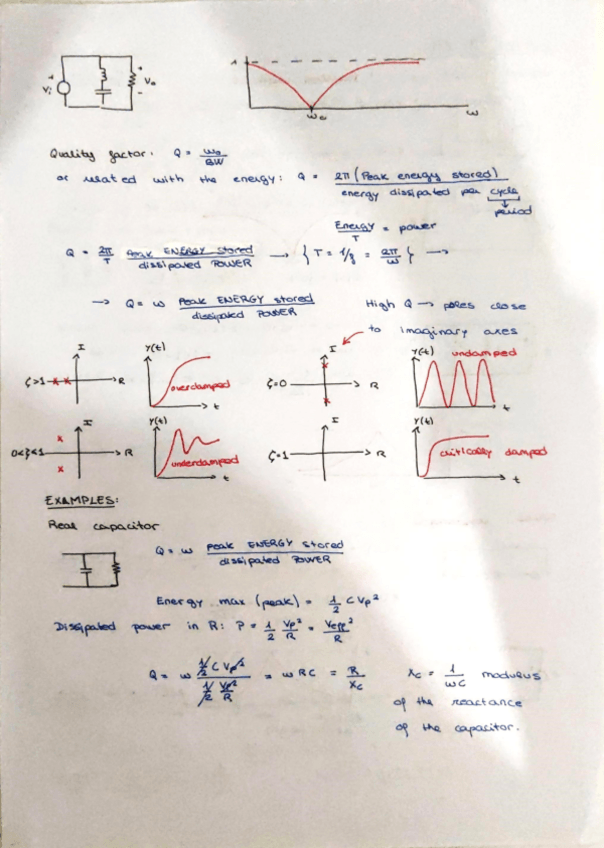 Vi + + Vo -
1
ω₀ ω
Quality factor: Q = ω₀/BW
or related with the energy: Q = 2π (Peak energy stored) / energy dissipated per cycle
period
Energy/T = power
Q = 2π/T Peak ENERGY stored / dissipated POWER → { T = 1/f = 2π/ω } →
→ Q = ω Peak ENERGY stored / dissipated POWER High Q → poles close
to imaginary axes
ζ>1 I R Y(t) overdamped t ζ=0 I R Y(t) undamped t
0<ζ<1 I R Y(t) underdamped t ζ=1 I R Y(t) critically damped t
EXAMPLES:
Real capacitor
Q = ω Peak ENERGY stored / dissipated POWER
Energy max (peak) = 1/2 C Vp²
Dissipated power in R: P = 1/2 Vp²/R = Veff²/R
Q = ω 1/2 C Vp² / 1/2 Vp²/R = ωRC = R/Xc Xc = 1/ωC modulus
of the reactance
of the capacitor.